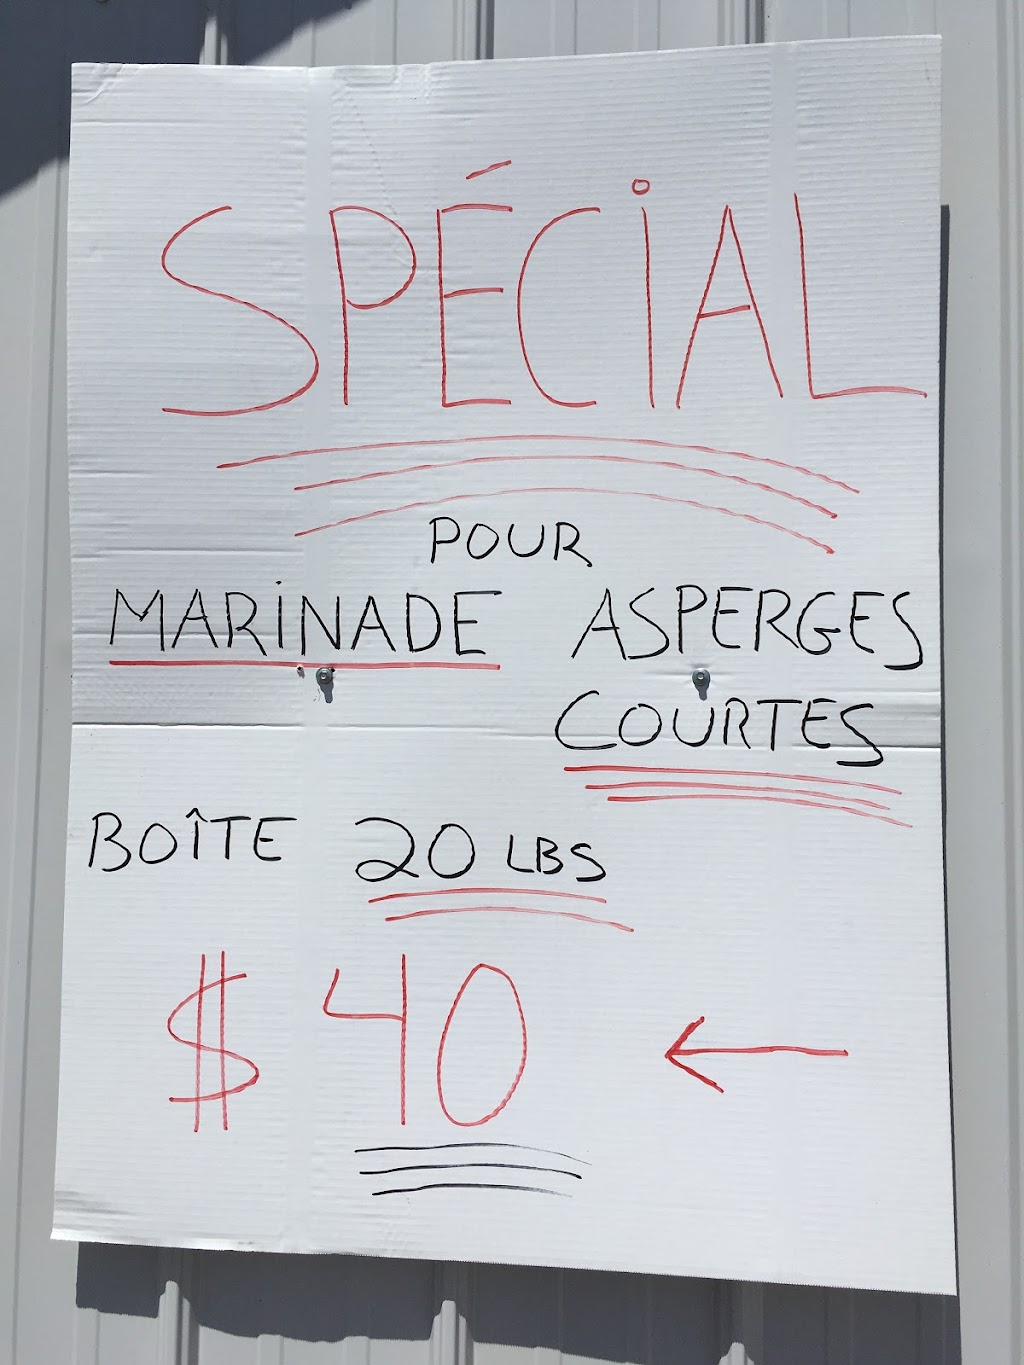 SPÉCIAL
POUR
MARINADE ASPERGES
COURTES
BOÎTE 20 LBS
$ 40